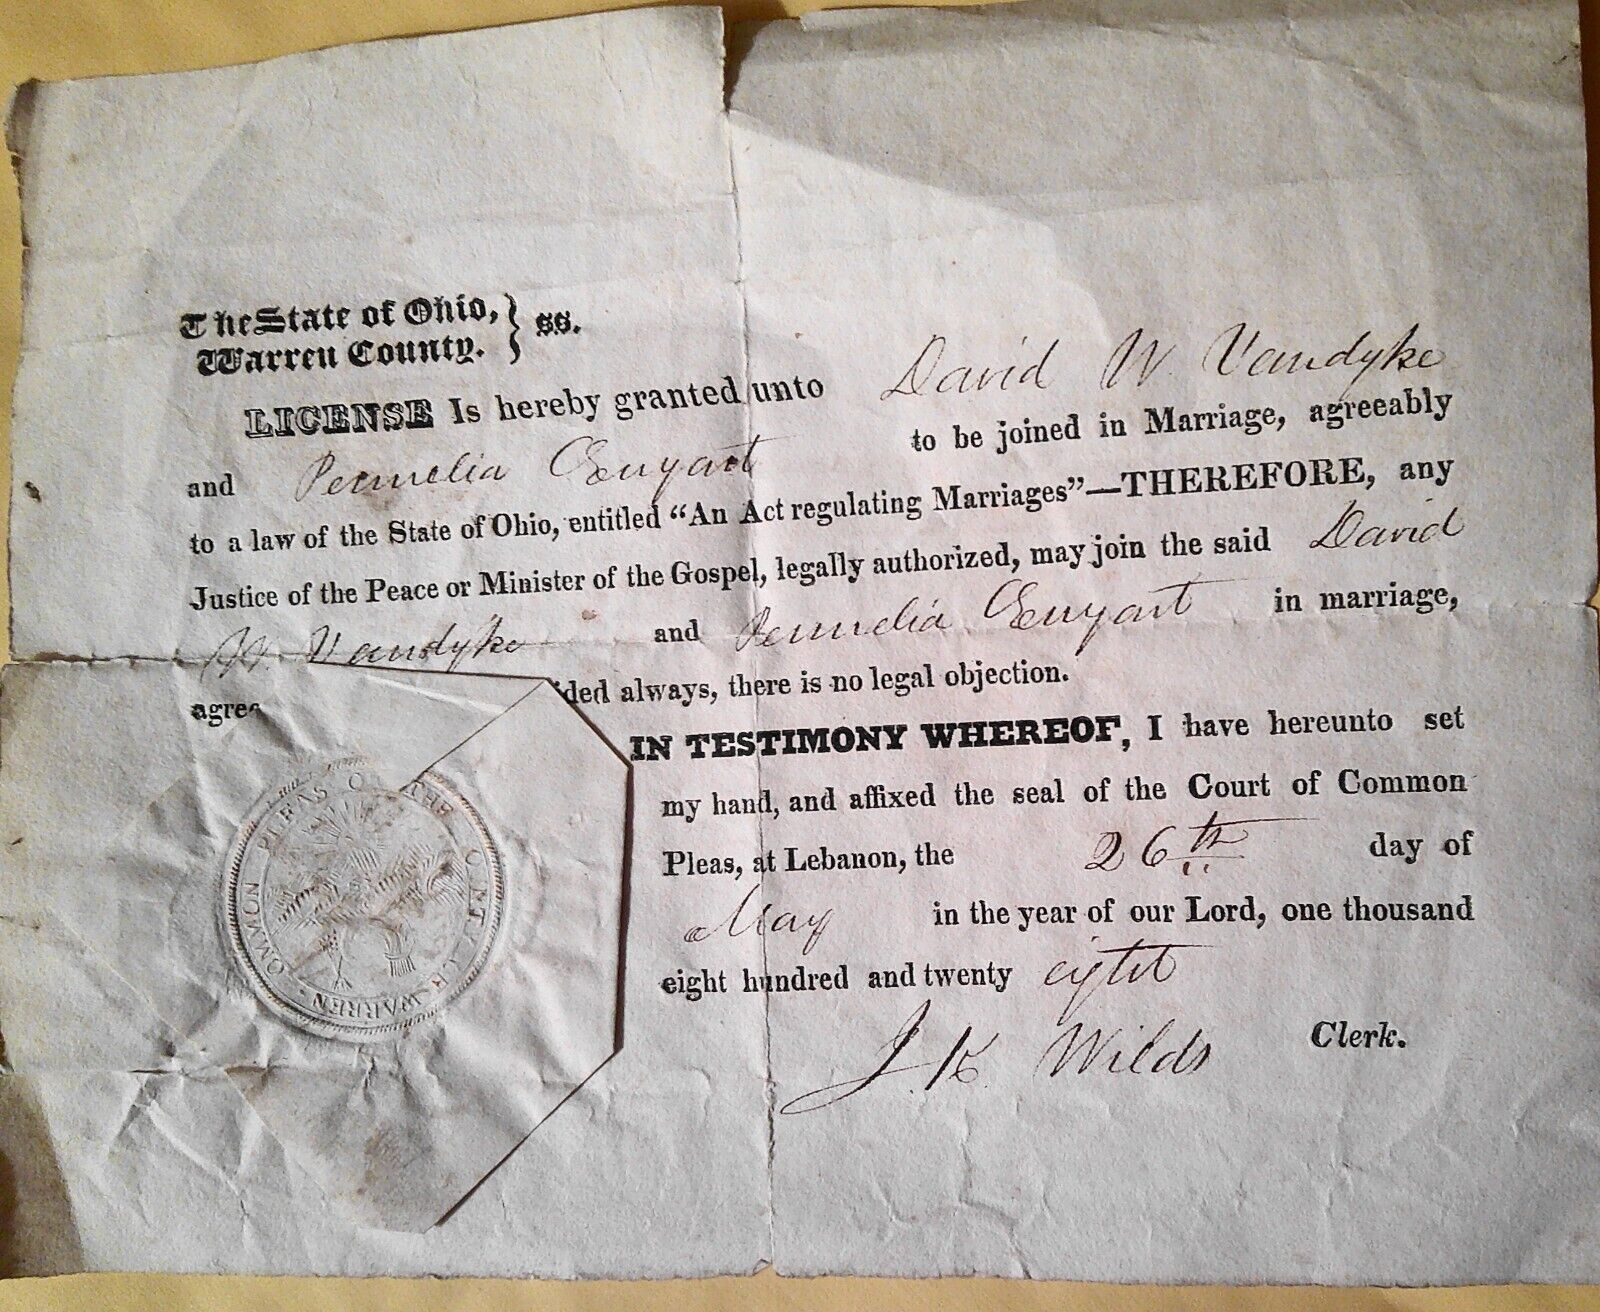 The State of Ohio,
Warren County. } ss.
LICENSE Is hereby granted unto David W. Vandyke
and Permelia Enyart to be joined in Marriage, agreeably
to a law of the State of Ohio, entitled "An Act regulating Marriages"—THEREFORE, any
Justice of the Peace or Minister of the Gospel, legally authorized, may join the said David
W. Vandyke and Permelia Enyart in marriage,
agree ided always, there is no legal objection.
IN TESTIMONY WHEREOF, I have hereunto set
my hand, and affixed the seal of the Court of Common
Pleas, at Lebanon, the 26th day of
May in the year of our Lord, one thousand
eight hundred and twenty eight
J. K. Wilds Clerk.
COMMON PLEAS OF THE WARREN